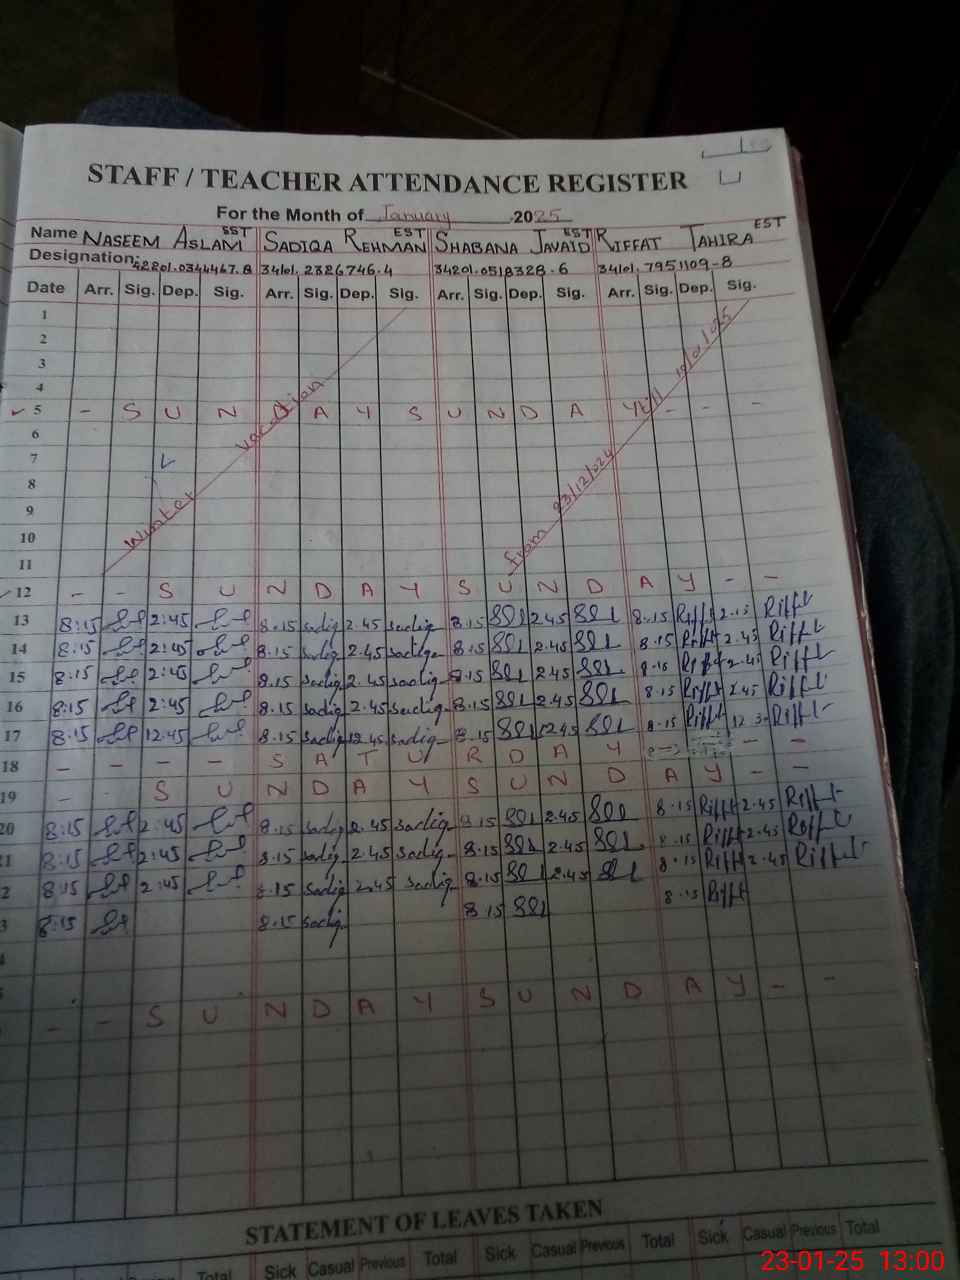 STAFF / TEACHER ATTENDANCE REGISTER
For the Month of January 2025
Name NASEEM ASLAM SST SADIQA REHMAN EST SHABANA JAVAID EST RIFFAT TAHIRA EST
Designation: 42201.0344467.8 34101.2326746.4 34201.0518328.6 34101.7951109-8
Date Arr. Sig. Dep. Sig. Arr. Sig. Dep. Sig. Arr. Sig. Dep. Sig. Arr. Sig. Dep. Sig.
1
2
3
4
5 - S U N D A Y S U N D A Y - - -
6
7
8
9
10
11
Winter Vacation
From 23/12/2024 till 10/01/2025
12 - - S U N D A Y S U N D A Y - -
13 8:15 2:45 8.15 sadiq 2.45 sadiq 8.15 2.45 8.15 Riff 2.45 Riff
14 8:15 2:45 8.15 sadiq 2.45 sadiq 8.15 2.45 8.15 Riff 2.45 Riff
15 8:15 2:45 8.15 sadiq 2.45 sadiq 8.15 2.45 8.15 Riff 2.45 Riff
16 8:15 2:45 8.15 sadiq 2.45 sadiq 8.15 2.45 8.15 Riff 2.45 Riff
17 8:15 12:45 8.15 sadiq 12.45 sadiq 8.15 12.45 8.15 Riff Riff
18 - - - - S A T U R D A Y - -
19 - - S U N D A Y S U N D A Y - -
20 8:15 2:45 8.15 sadiq 2.45 sadiq 8.15 2.45 8.15 Riff 2.45 Riff
21 8:15 2:45 8.15 sadiq 2.45 sadiq 8.15 2.45 8.15 Riff 2.45 Riff
2 8:15 2:45 8.15 sadiq 2.45 sadiq 8.15 2.45 8.15 Riff 2.45 Riff
3 8:15 8.15 sadiq 8.15 8.15 Riff
- - S U N D A Y S U N D A Y - -
STATEMENT OF LEAVES TAKEN
Total Sick Casual Previous Total Sick Casual Previous Total Sick Casual Previous Total
23-01-25 13:00